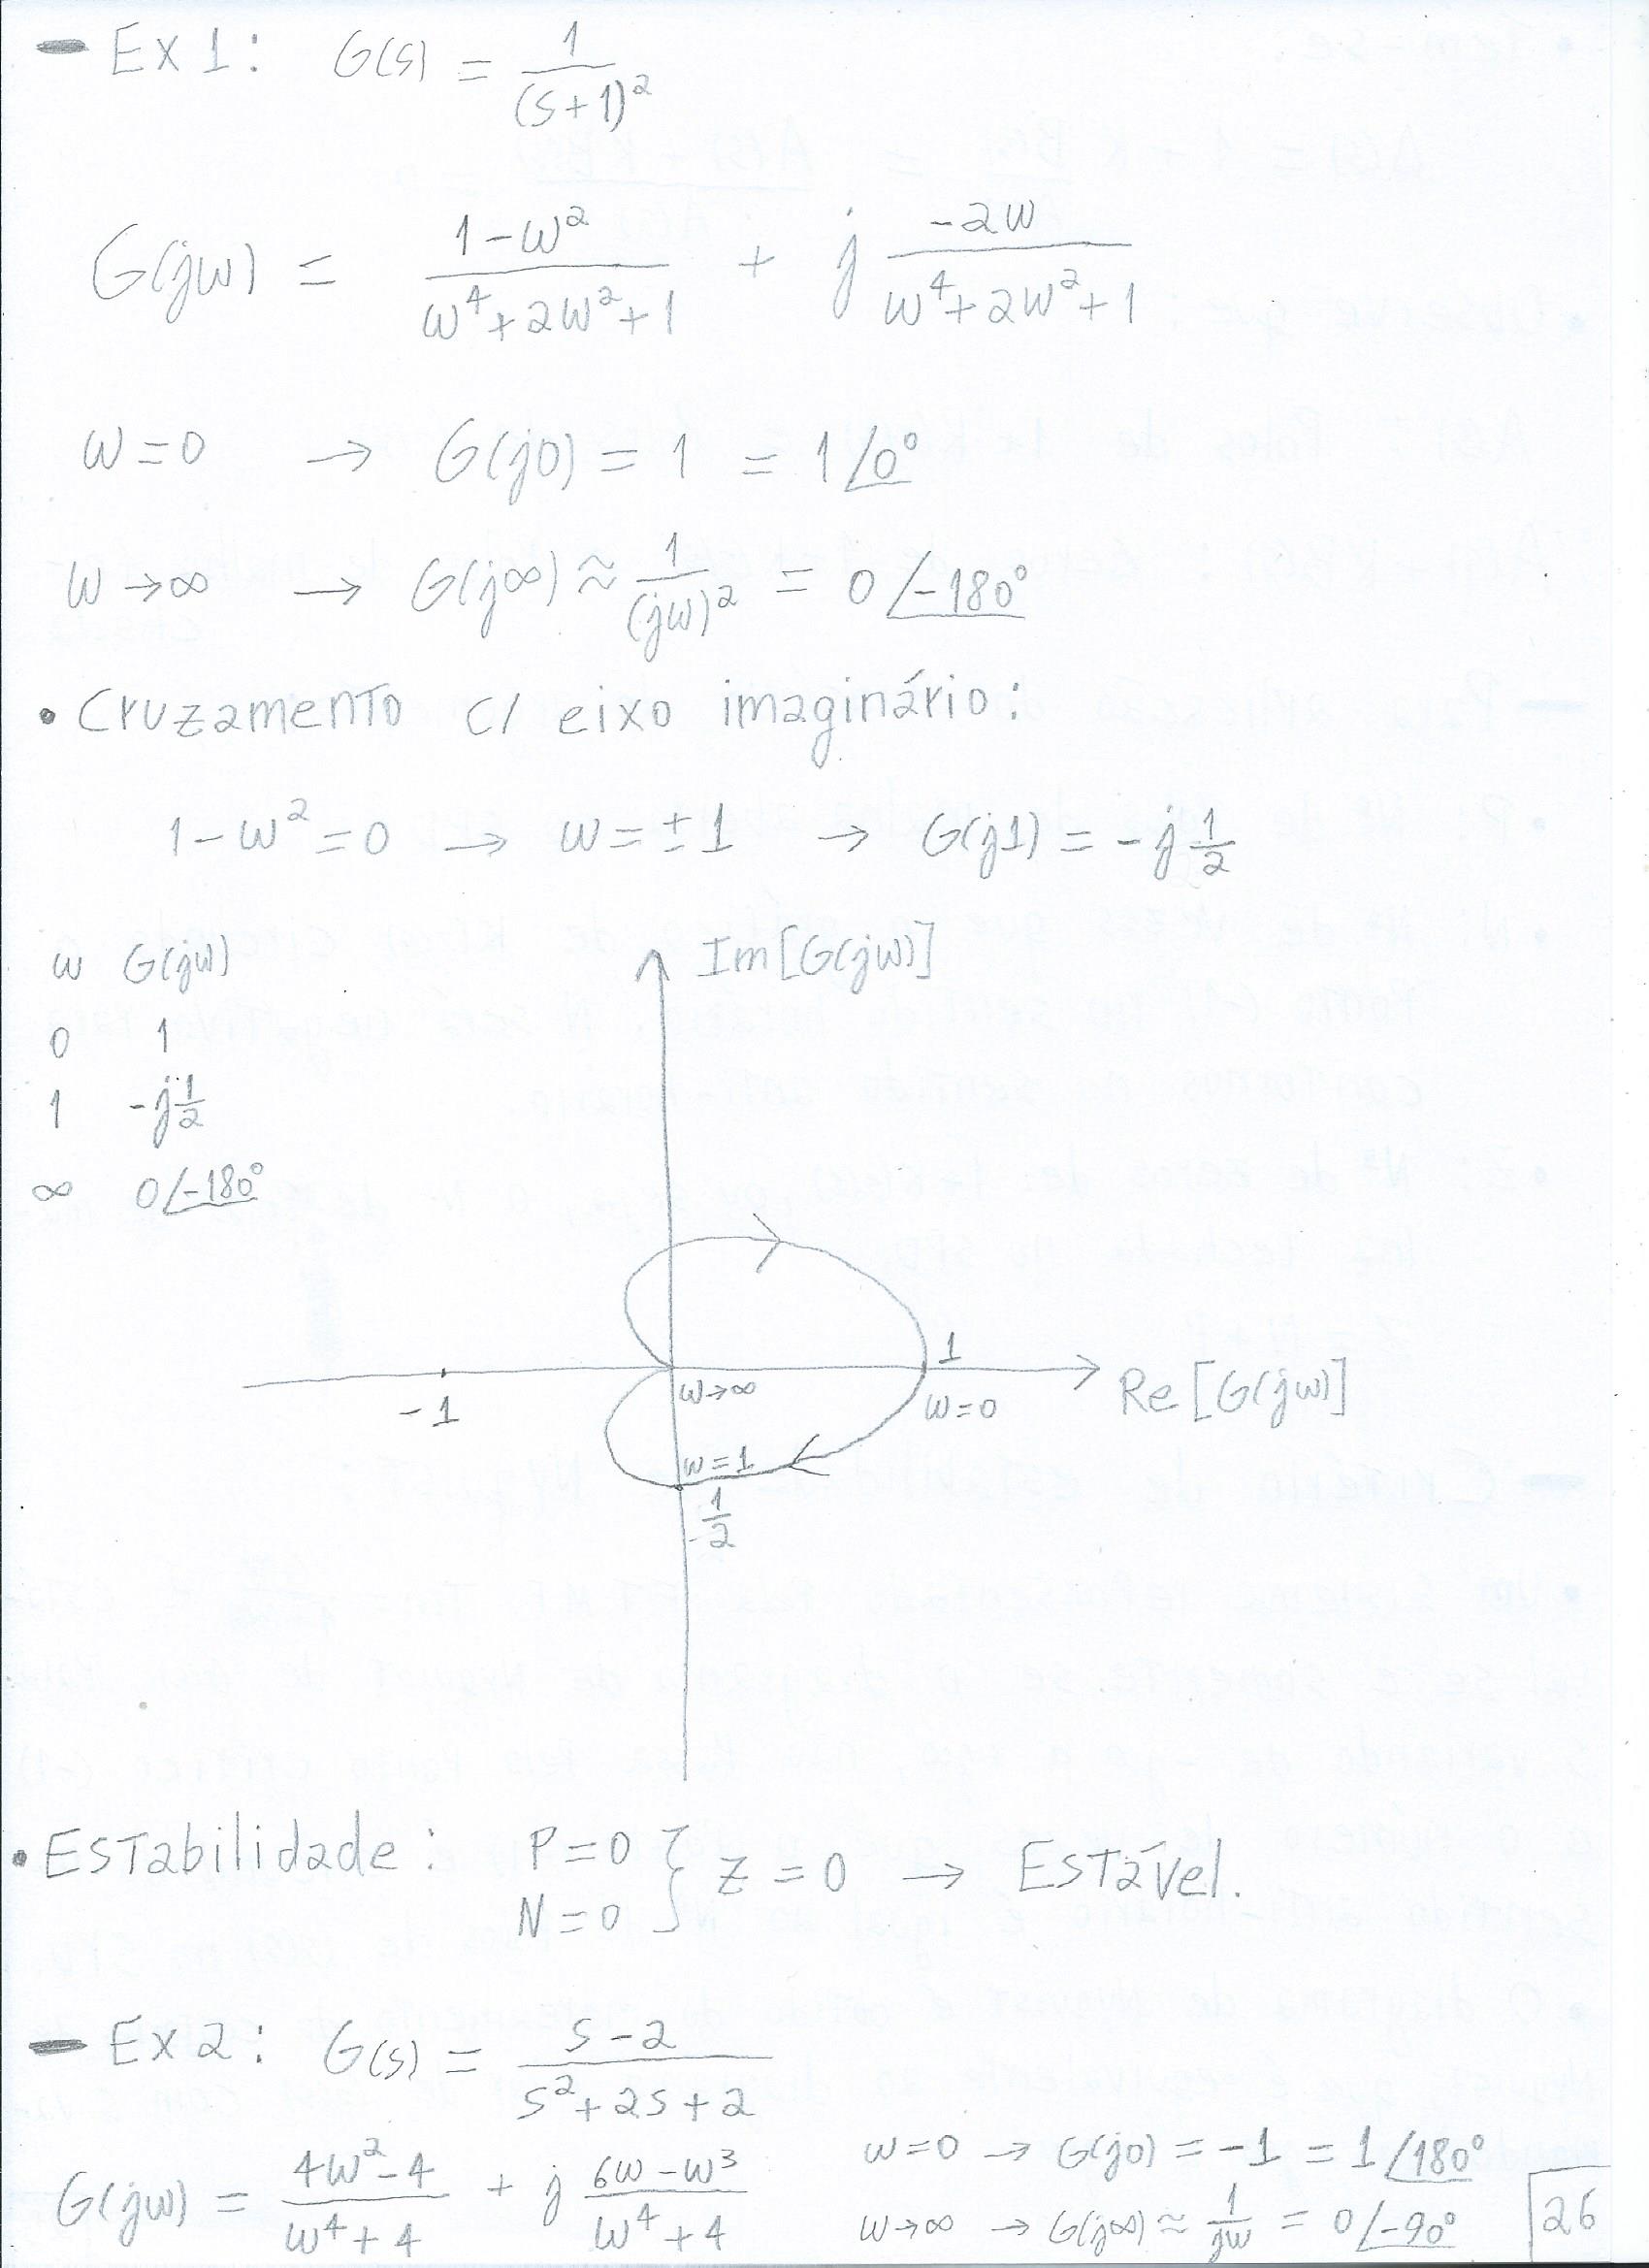 - Ex 1: G(s) = 1/(s+1)²
G(jω) = (1-ω²)/(ω⁴+2ω²+1) + j (-2ω)/(ω⁴+2ω²+1)
ω=0 → G(j0) = 1 = 1∠0°
ω→∞ → G(j∞) ≈ 1/(jω)² = 0∠-180°
• Cruzamento c/ eixo imaginário:
1-ω²=0 → ω=±1 → G(j1) = -j 1/2
ω G(jω)
0 1
1 -j 1/2
∞ 0∠-180°
Im[G(jω)]
1
-1
ω→∞
ω=0
Re[G(jω)]
ω=1
-1/2
• Estabilidade: P=0 N=0 } Z=0 → Estável.
- Ex 2: G(s) = (s-2)/(s²+2s+2)
G(jω) = (4ω²-4)/(ω⁴+4) + j (6ω-ω³)/(ω⁴+4)
ω=0 → G(j0) = -1 = 1∠180°
ω→∞ → G(j∞) ≈ 1/jω = 0∠-90°
26